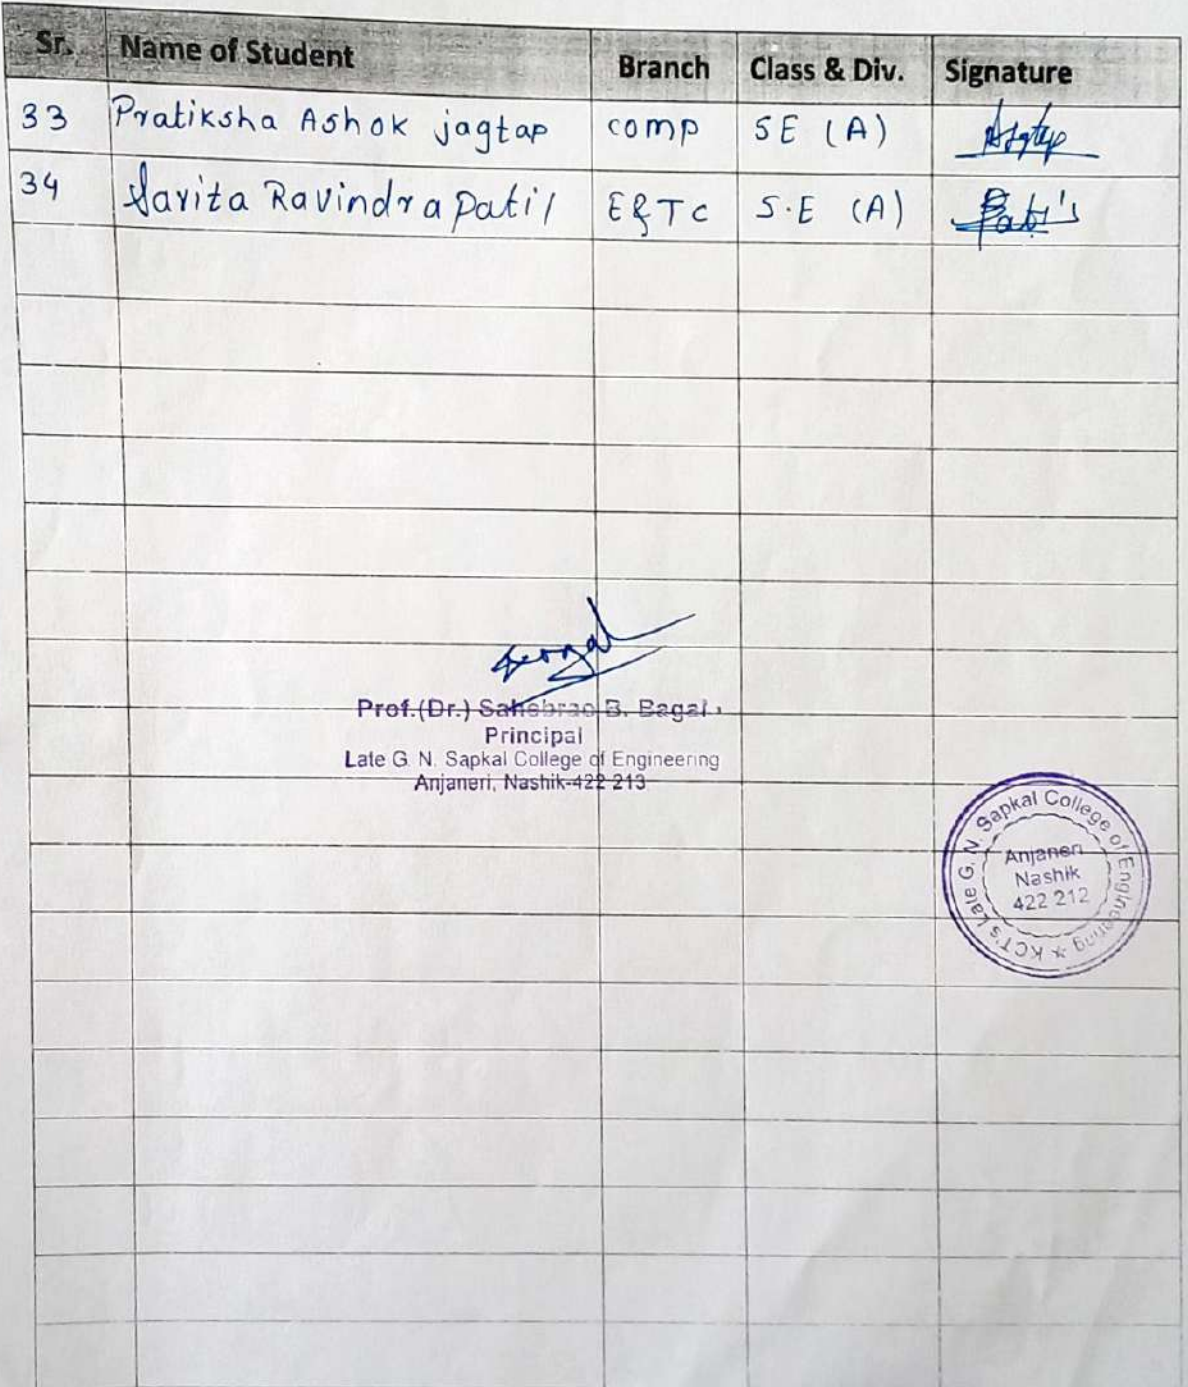 Sr. Name of Student Branch Class & Div. Signature
33 Pratiksha Ashok jagtap comp SE (A)
34 Savita Ravindra Patil E&TC S.E (A)
Prof.(Dr.) Sahebrao B. Bagal
Principal
Late G. N. Sapkal College of Engineering
Anjaneri, Nashik-422 213
KCT's Late G. N. Sapkal College of Engineering *
Anjaneri
Nashik
422 212